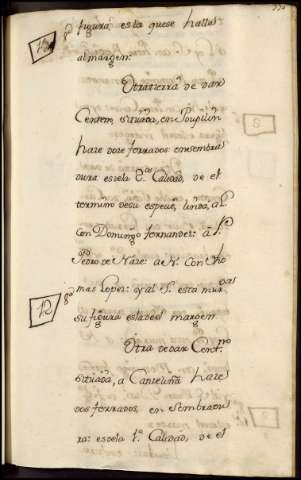 figura esta que se halla
al margen:
Otra tierra de dar
Centeno situada, en Poupilin
haze doze ferrados ensembra
dura es de la 2ª Calidad, de el
termino de su especie, linda, a L.
con Domingo fernandez: a P.
Pedro de Nare: a N. con Tho
mas Lopez: y al S. esta mural
12
su figura es la de el margen
Otra de dar Centno
situada, a Cancelina haze
dos ferrados, en sembradu
ra: es de la 1ª Calidad, de el